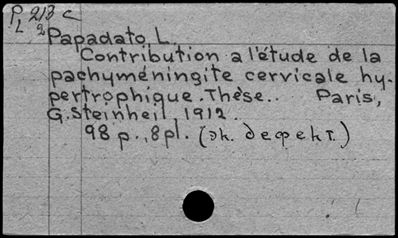 P 213 c
L 2
Papadato L.
Contribution a l'étude de la
pachyméningite cervicale hy-
pertrophique. Thèse.. Paris,
G. Steinheil, 1912.
98 p., 8 pl. (эк. дефект.)